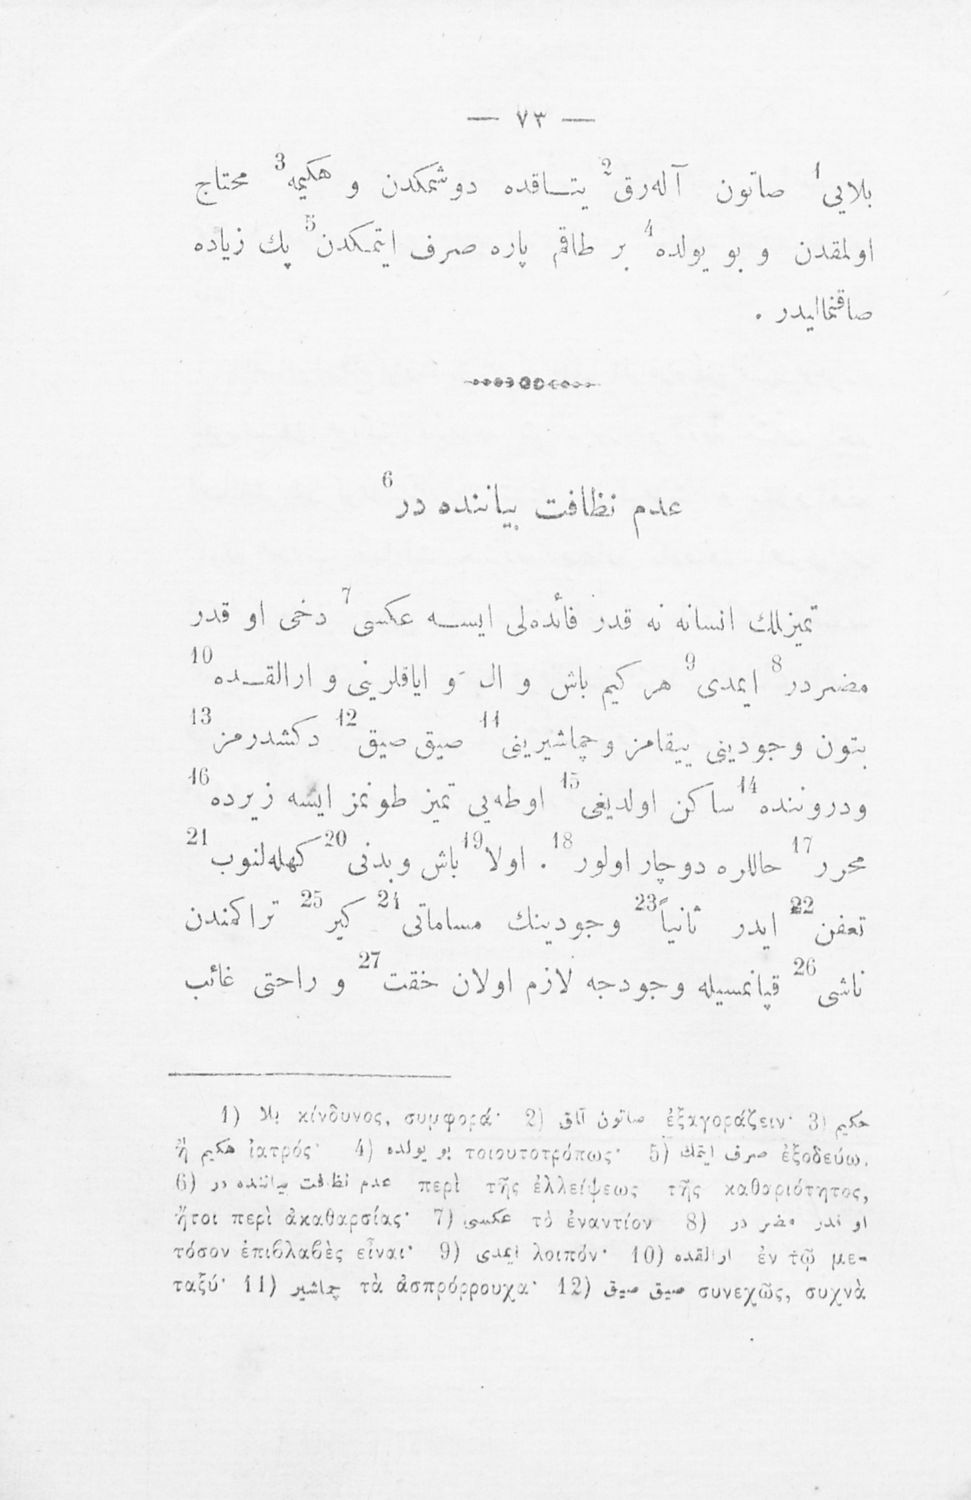 — ٧٣ —
بلايى¹ صاتون آلەرق² يتـاقده دوشمكدن و هكيمه³ محتاج
اولمقدن و بو يولده⁴ بر طاقم پاره صرف ايتمكدن⁵ پك زياده
صاقنمااليدر .
عدم نظافت بياننده در⁶
تميزلك انسانه نه قدر فائدەلى ايسه عكسى⁷ دخى او قدر
مضردر⁸ ايمدى⁹ هر كيم باش و ال و اياقلرينى و ارالقـده¹⁰
بتون وجودينى ييقامز و چماشيرينى¹¹ صيق صيق¹² دكشدرمز¹³
ودروننده¹⁴ ساكن اولديغى¹⁵ اوطەيى تميز طوتمز ايسه زيرده¹⁶
محرر¹⁷ حاللره دوچار اولور¹⁸ . اولا¹⁹ باش و بدنى²⁰ كهلەلنوب²¹
تعفن²² ايدر ثانياً²³ وجودينك مساماتى²⁴ كير²⁵ تراكمندن
ناشى²⁶ قپانمسيله وجودجه لازم اولان خفت²⁷ و راحتى غائب
1) بلا κίνδυνος, συμφορά· 2) صاتون آلمق ἐξαγοράζειν· 3) حكيم
ἢ هكيم ἰατρός· 4) بو يولده τοιουτοτρόπως· 5) صرف ايتمك ἐξοδεύω.
6) عدم نظافت بياننده در περὶ τῆς ἐλλείψεως τῆς καθαριότητος,
ἤτοι περὶ ἀκαθαρσίας· 7) عكسى τὸ ἐναντίον 8) او قدر مضر در
τόσον ἐπιβλαβὲς εἶναι· 9) ايمدى λοιπόν· 10) ارالقده ἐν τῷ με-
ταξύ· 11) چماشير τὰ ἀσπρόρρουχα· 12) صيق صيق συνεχῶς, συχνὰ